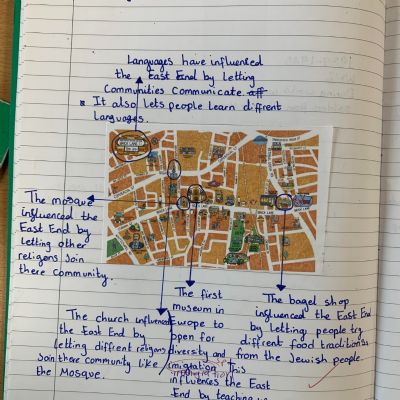 Languages have influenced
the East End by Letting
Communities Communicate.
It also Lets people Learn diffrent
Languages.
BRICK LANE
The mosque
influenced the
East End by
letting other
religons Join
there community.
The church influenced
the East End by
letting diffrent religons
Join there community like
the Mosque.
The first
museum in
Europe to
open for
diversity and
imigration This
influences the East
End by teaching
The bagel shop
influenced the East End
by letting people try
different food traditions
from the Jewish people.